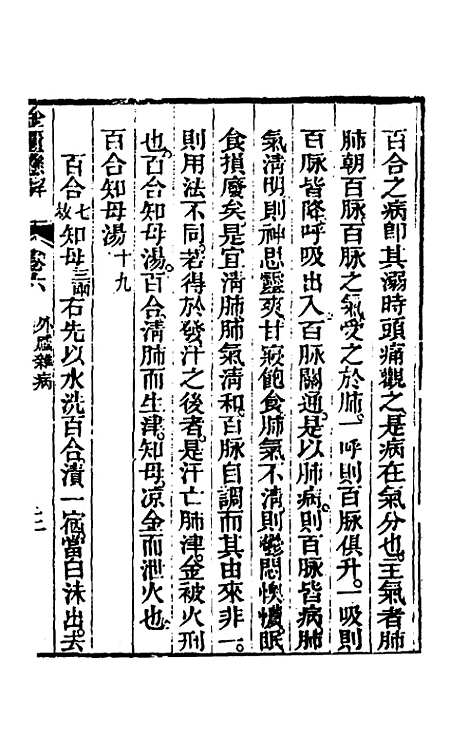 百合之病即其溺時頭痛觀之是病在氣分也主氣者肺
肺朝百脈百脈之氣受之於肺一呼則百脈俱升一吸則
百脈皆降呼吸出入百脈關通是以肺病則百脈皆病肺
氣清明則神思靈爽甘寢飽食肺氣不清則鬱悶懊憹眠
食損廢矣是宜清肺肺氣清和百脈自調而其由來非一
則用法不同若得於發汗之後者是汗亡肺津金被火刑
也百合知母湯百合清肺而生津知母凉金而泄火也
百合知母湯十九
百合七枚知母三兩右先以水洗百合漬一宿當白沫出去
金匱懸解 卷六 外感雜病 二